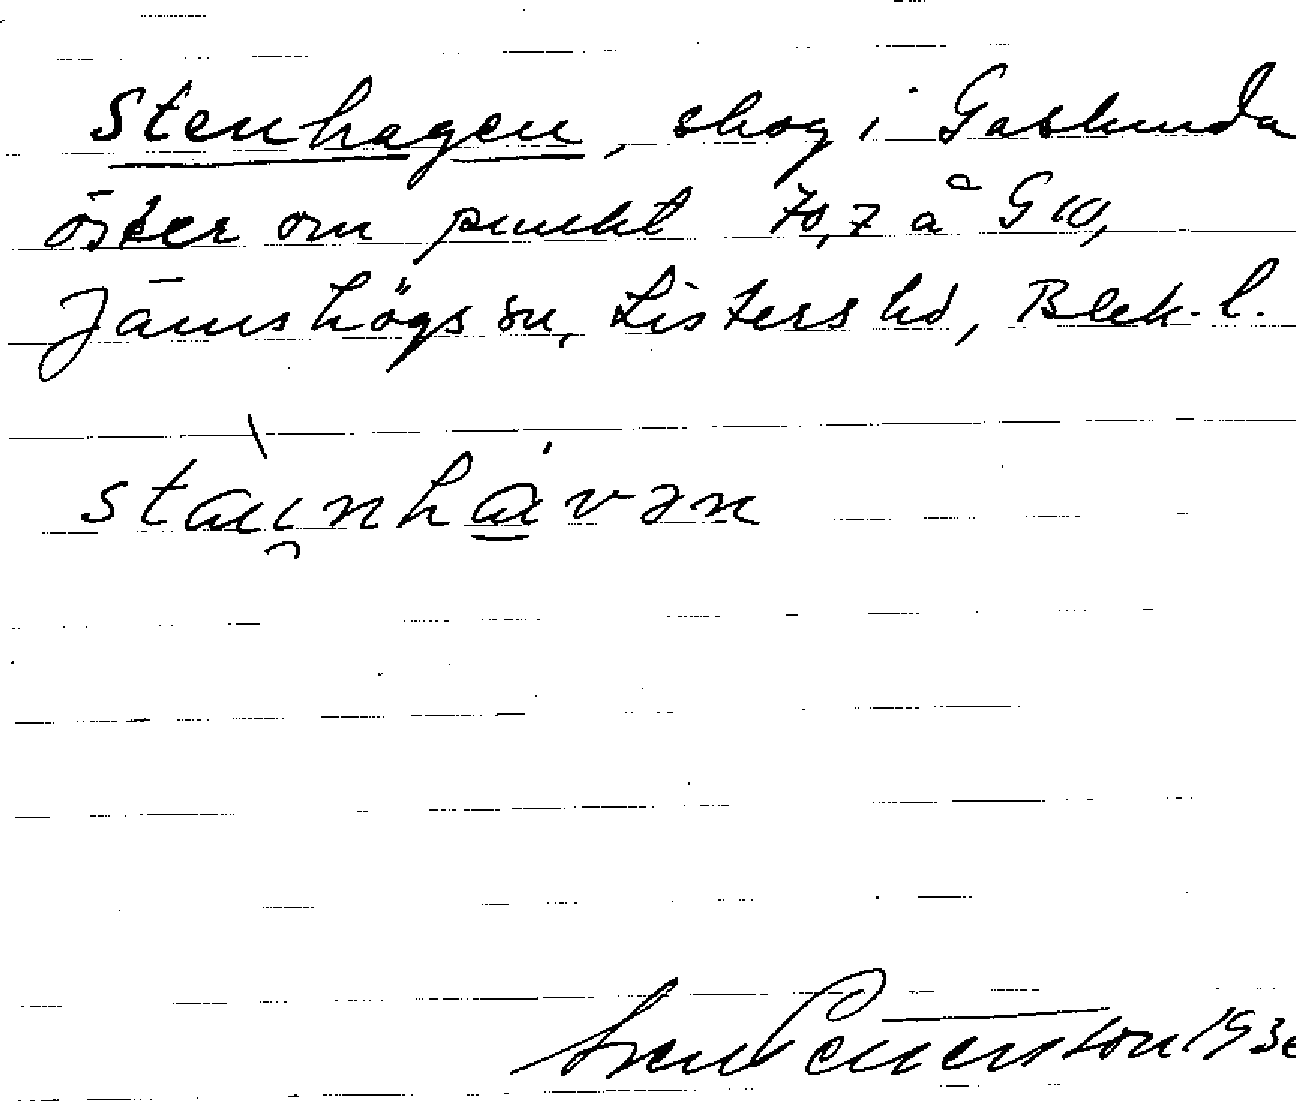 Stenhagen, skog i Gaslunda
öster om punkt 70,7 å G 10,
Jämshögs sn, Listers hd, Blek. l.
stau̯nhavən
Sven Petersson 193